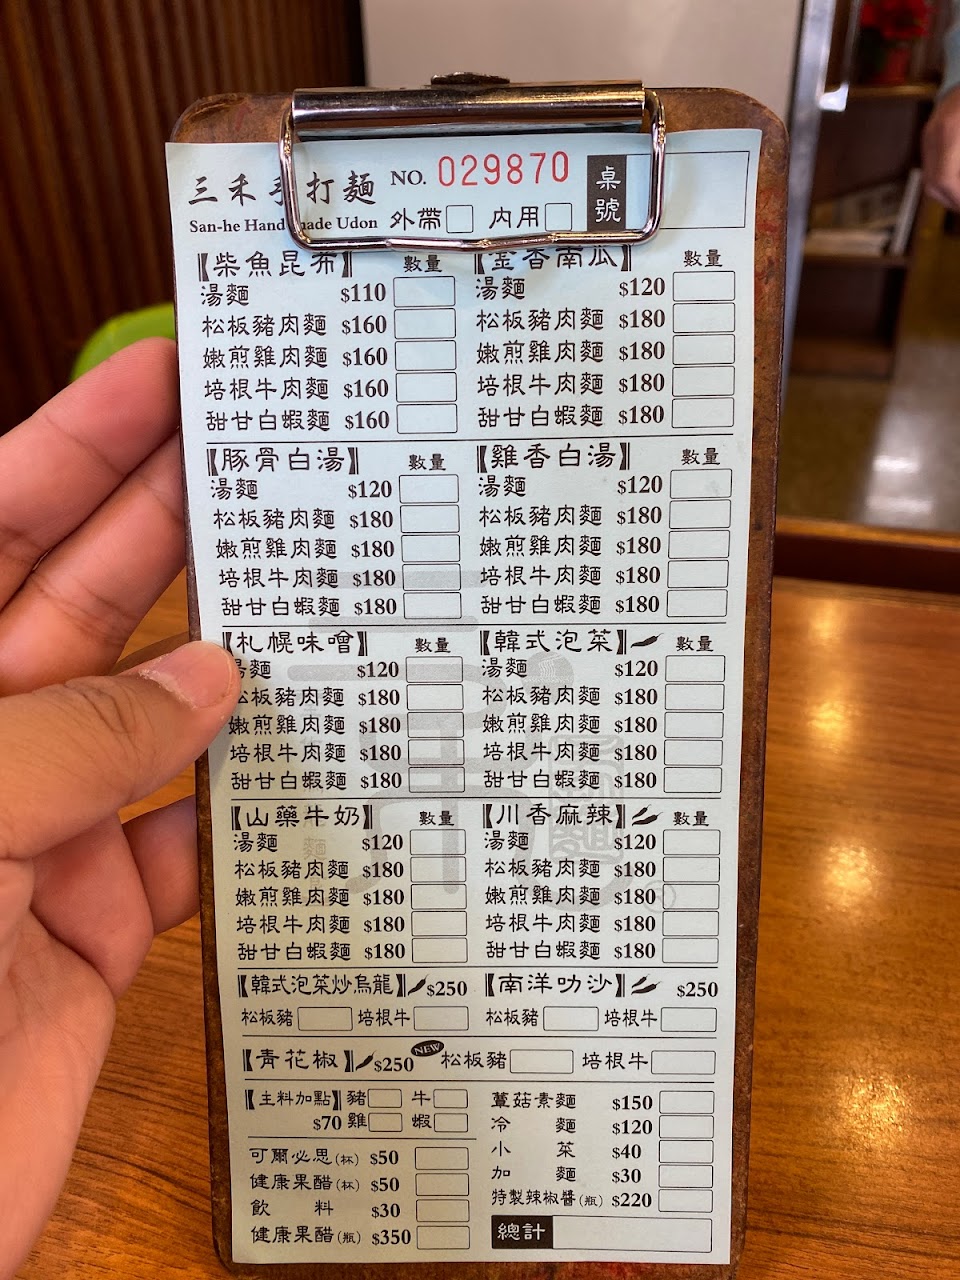 三禾手打麵 NO. 029870 桌號
San-he Handmade Udon 外帶 內用
【柴魚昆布】 數量
湯麵 $110
松板豬肉麵 $160
嫩煎雞肉麵 $160
培根牛肉麵 $160
甜甘白蝦麵 $160
【金香南瓜】 數量
湯麵 $120
松板豬肉麵 $180
嫩煎雞肉麵 $180
培根牛肉麵 $180
甜甘白蝦麵 $180
【豚骨白湯】 數量
湯麵 $120
松板豬肉麵 $180
嫩煎雞肉麵 $180
培根牛肉麵 $180
甜甘白蝦麵 $180
【雞香白湯】 數量
湯麵 $120
松板豬肉麵 $180
嫩煎雞肉麵 $180
培根牛肉麵 $180
甜甘白蝦麵 $180
【札幌味噌】 數量
湯麵 $120
松板豬肉麵 $180
嫩煎雞肉麵 $180
培根牛肉麵 $180
甜甘白蝦麵 $180
【韓式泡菜】 數量
湯麵 $120
松板豬肉麵 $180
嫩煎雞肉麵 $180
培根牛肉麵 $180
甜甘白蝦麵 $180
【山藥牛奶】 數量
湯麵 $120
松板豬肉麵 $180
嫩煎雞肉麵 $180
培根牛肉麵 $180
甜甘白蝦麵 $180
【川香麻辣】 數量
湯麵 $120
松板豬肉麵 $180
嫩煎雞肉麵 $180
培根牛肉麵 $180
甜甘白蝦麵 $180
【韓式泡菜炒烏龍】 $250
松板豬 培根牛
【南洋叻沙】 $250
松板豬 培根牛
【青花椒】 $250 NEW 松板豬 培根牛
【主料加點】 豬 牛
$70 雞 蝦
可爾必思(杯) $50
健康果醋(杯) $50
飲料 $30
健康果醋(瓶) $350
蕈菇素麵 $150
冷麵 $120
小菜 $40
加麵 $30
特製辣椒醬(瓶) $220
總計